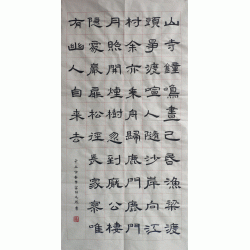 山寺鐘鳴晝已昏漁梁渡
頭爭渡喧人隨沙岸向江
村余亦乘舟歸鹿門鹿門
月照開煙樹忽到龐公棲
隱處巖扉松徑長寂寥唯
有幽人自來去